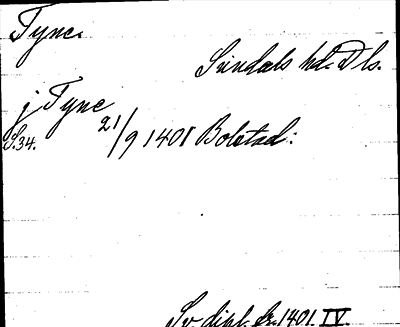 Tyne.
Sundals hd. Dls.
j Tyne
S.34. 21/9 1401 Bolstad:
Sv. dipl. fr. 1401. IV.